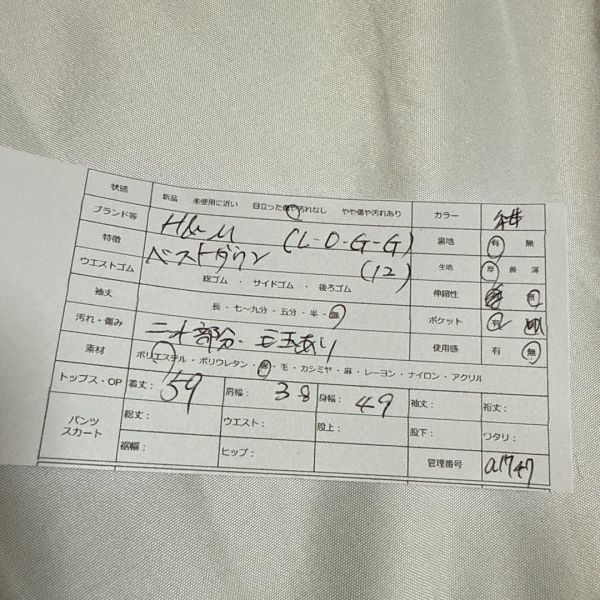 状態 新品 未使用に近い 目立った傷や汚れなし やや傷や汚れあり カラー
ブランド等 H&M (L-O-G-G) 裏地 有 無
特徴 ベストダウン (12) 生地 厚 普 薄
ウエストゴム 総ゴム ・ サイドゴム ・ 後ろゴム 伸縮性 無
袖丈 長 ・ 七〜九分 ・ 五分 ・ 半 ・ 無 ポケット 有
汚れ・傷み ニット部分・毛玉あり 使用感 有 無
素材 ポリエステル ・ ポリウレタン ・ 綿 ・ 毛 ・ カシミヤ ・ 麻 ・ レーヨン ・ ナイロン ・ アクリル
トップス・OP 着丈: 59 肩幅: 38 身幅: 49 袖丈: 裄丈:
パンツ スカート 総丈: ウエスト: 股上: 股下: ワタリ:
裾幅: ヒップ: 管理番号 a1747